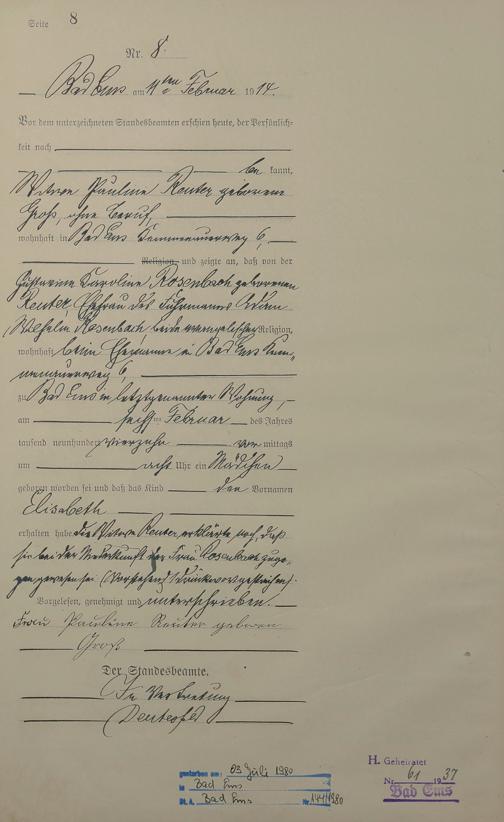 Seite 8
Nr. 8.
Bad Ems am 11ten Februar 1914.
Vor dem unterzeichneten Standesbeamten erschien heute, der Persönlich-
keit nach
be kannt,
Witwe Pauline Reuter geborene
Groß, ohne Beruf,
wohnhaft in Bad Ems Kemmenauerweg 6,
Religion, und zeigte an, daß von der
Karoline Rosenbach geborenen
Reuter, Ehefrau des Fuhrmanns Adam
Wilhelm Rosenbach, beide evangelischer Religion,
wohnhaft beim Ehemanne in Bad Ems Kem-
menauerweg 6,
zu Bad Ems in letztgenannter Wohnung,
am sechsten Februar des Jahres
tausend neunhundert vierzehn vor mittags
um acht Uhr ein Mädchen
geboren worden sei und daß das Kind den Vornamen
Elisabeth
erhalten habe. die Witwe Reuter erklärte noch, daß
sie bei der Niederkunft der Frau Rosenbach zuge-
gen gewesen sei. (Vorstehend Druckwort gestrichen).
Vorgelesen, genehmigt und unterschrieben.
Frau Pauline Reuter geboren
Groß
Der Standesbeamte.
In Vertretung
gestorben am: 03. Juli 1980
in Bad Ems
St. A. Bad Ems Nr. 144/1980
H. Geheiratet
Nr. 61 1937
Bad Ems